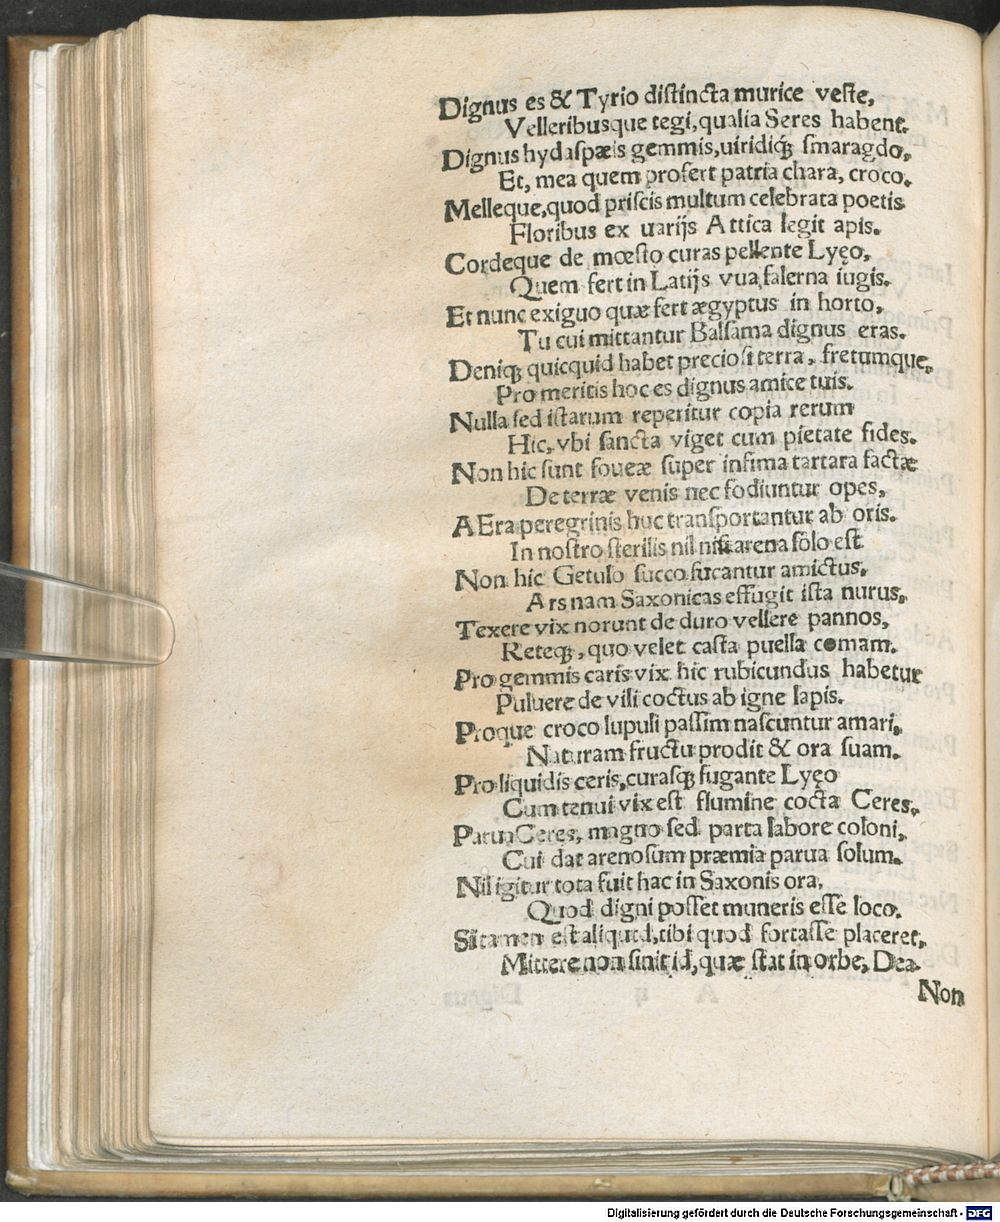 Dignus es & Tyrio distincta murice veste,
Velleribusque tegi, qualia Seres habent.
Dignus hydaspæis gemmis, uiridiq́ smaragdo,
Et, mea quem profert patria chara, croco.
Melleque, quod priscis multum celebrata poetis
Floribus ex uarijs Attica legit apis.
Cordeque de mœsto curas pellente Lyęo,
Quem fert in Latijs vua falerna iugis.
Et nunc exiguo quæ fert ægyptus in horto,
Tu cui mittantur Balsama dignus eras.
Deniq; quicquid habet preciosi terra, fretumque,
Pro meritis hoc es dignus amice tuis.
Nulla sed istarum reperitur copia rerum
Hic, vbi sancta viget cum pietate fides.
Non hic sunt foueæ super infima tartara factæ
De terræ venis nec fodiuntur opes,
AEra peregrinis huc transportantur ab oris.
In nostro sterilis nil nisi arena solo est
Non hic Getulo succo fucantur amictus,
Ars nam Saxonicas effugit ista nurus,
Texere vix norunt de duro vellere pannos,
Reteq;, quo velet casta puella comam.
Pro gemmis caris vix hic rubicundus habetur
Puluere de vili coctus ab igne lapis.
Proque croco lupuli passim nascuntur amari,
Naturam fructu prodit & ora suam.
Pro liquidis ceris, curasq; fugante Lyęo
Cum tenui vix est flumine cocta Ceres,
Parua Ceres, magno sed parta labore coloni,
Cui dat arenosum præmia parua solum.
Nil igitur tota fuit hac in Saxonis ora,
Quod digni posset muneris esse loco.
Si tamen est aliquid, tibi quod fortasse placeret,
Mittere non sinit id, quæ stat in orbe, Dea.
Non
Digitalisierung gefördert durch die Deutsche Forschungsgemeinschaft - DFG